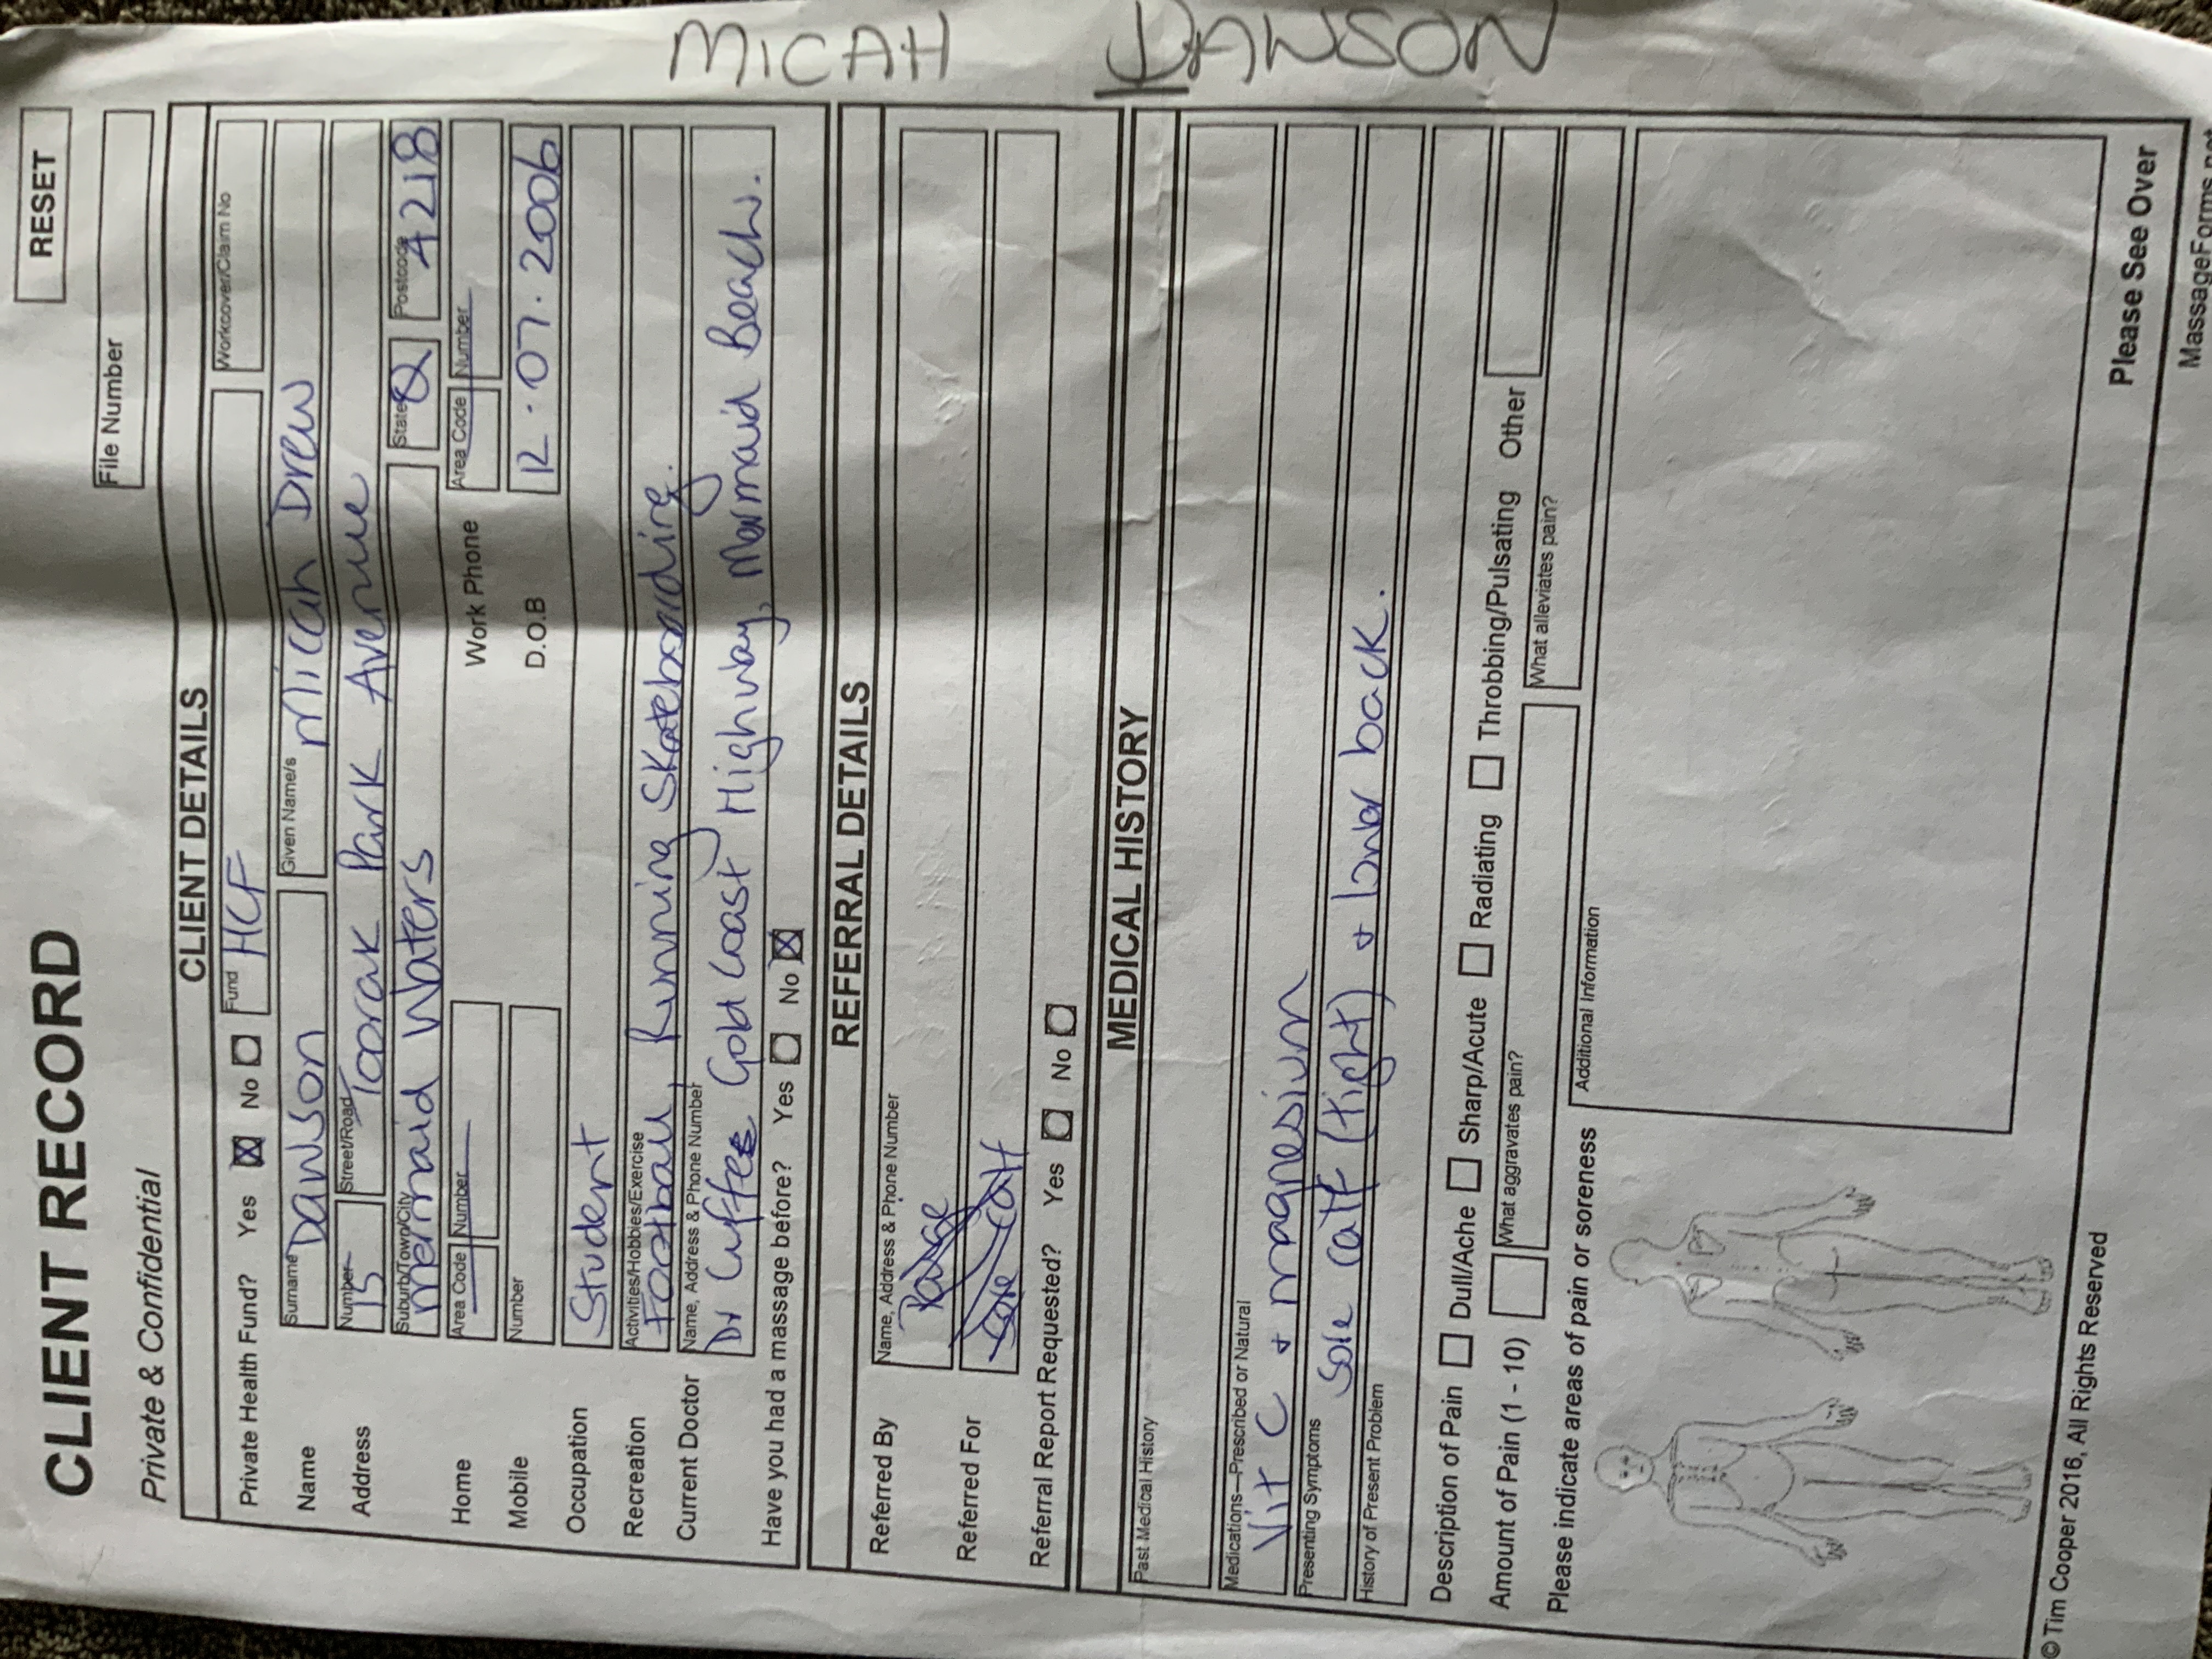 MICAH DAWSON
RESET
CLIENT RECORD
File Number
Private & Confidential
CLIENT DETAILS
Private Health Fund? Yes ☒ No ☐ Fund HCF Workcover/Claim No
Name Surname Dawson Given Name/s Micah Drew
Address Number 15 Street/Road Toorak Park Avenue
Suburb/Town/City Mermaid Waters State Q Postcode 4218
Home Area Code Number Work Phone Area Code Number
Mobile Number D.O.B 12.07.2006
Occupation Student
Recreation Activities/Hobbies/Exercise Football, Running Skateboarding.
Current Doctor Name, Address & Phone Number Dr Cuffe Gold Coast Highway, Mermaid Beach.
Have you had a massage before? Yes ☐ No ☒
REFERRAL DETAILS
Referred By Name, Address & Phone Number
Referred For Calf
Referral Report Requested? Yes ☐ No ☐
MEDICAL HISTORY
Past Medical History
Medications—Prescribed or Natural
Vit C + magnesium
Presenting Symptoms
Sole calf (tight) + lower back.
History of Present Problem
Description of Pain ☐ Dull/Ache ☐ Sharp/Acute ☐ Radiating ☐ Throbbing/Pulsating Other
Amount of Pain (1 - 10) What aggravates pain? What alleviates pain?
Please indicate areas of pain or soreness Additional Information
Please See Over
© Tim Cooper 2016, All Rights Reserved